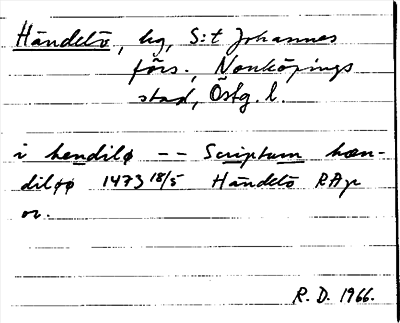 Händelö, hg, S:t Johannes
förs., Norrköpings
stad, Östg. l.
i hendilø -- Scriptum hæn-
diløø 1473 18/5 Händelö RAp
or.
R. D. 1966.